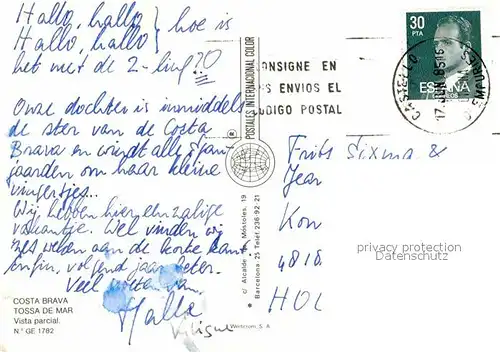 Hallo, hallo } hoe is
Hallo, hallo
het met de 2-ling?!
Onze dochter is inmiddels
de ster van de Costa
Brava en windt alle Span-
jaarden om haar kleine
vingertjes...
Wij hebben hier een zalige
vakantje. Wel vinden wij
zes weken aan de korte kant.
Enfin, volgend jaar beter.
Veel van
COSTA BRAVA
TOSSA DE MAR
Vista parcial.
N.° GE 1782
POSTALES INTERNACIONAL COLOR
c/ Alcalde Móstoles, 19
Barcelona 25 Telef: 236-92-21
S. A.
ONSIGNE EN
S ENVIOS EL
DIGO POSTAL
30
PTA
ESPAÑA
CASTELLO
17 JUN 85
Frits Sixma &
Jear
Kon
4818
HOL
privacy protection
Datenschutz